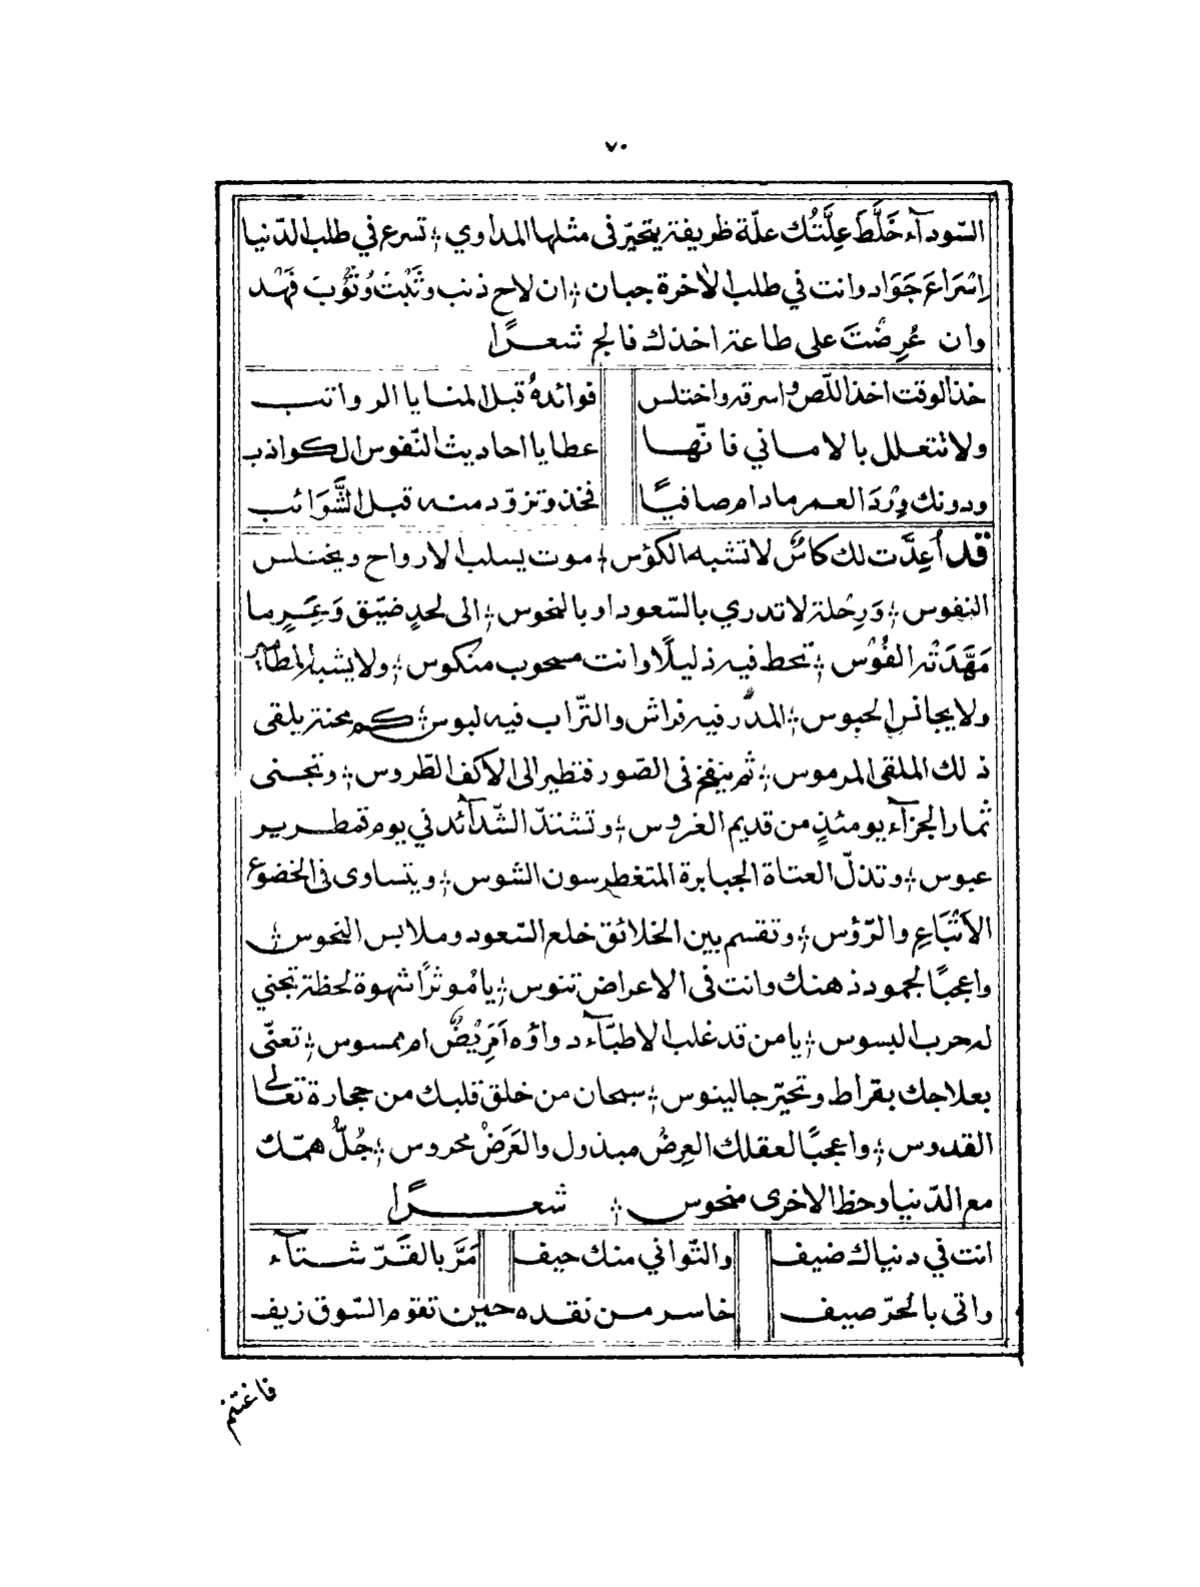 ٧٠
السّودآء خَلَّطَ عِلَّتُك علّة ظريفة يتحيّر فى مثلها المداوي ؛ تسرع في طلب الدّنيا
اِسْرَاعَ جَوَاد وانت في طلب الاٰخرة جبان ؛ ان لاح ذنب وثَبْتَ وُثُوْبَ فَهْد
وان عُرِضْتَ على طاعة اخذك فالج شعرًا
خذ الوقت اخذ اللّص واسرقه واختلس فوائدهُ قبل المنايا الرواتب
ولا تتعلل بالاماني فانّها عطايا احاديث النّفوس الكواذب
ودونك وِرْدَ العمر مادام صافيًا فخذ وتزوّد منه قبل الشَّوَائب
قد اُعِدَّت لك كاسٌ لا تشبه الكؤس ؛ موت يسلب الارواح ويختلس
النفوس ؛ وَرِحْلة لا تدري بالسّعود او بالنحوس ؛ الى لحدٍ ضيّق وَعِرٍ ما
مَهَّدَتْه الفُؤْس ؛ تحط فيه ذليلًا وانت مسحوب منكوس ؛ ولا يشبه المطامير
ولا يجانس الحبوس ؛ المدَر فيه فراش والتّراب فيه لبوس ؛ كم محنة يلقى
ذلك الملقى المرموس ؛ ثم ينفخ فى الصّور فتطير الى الاكف الطّروس ؛ وتجنى
ثمار الجزآء يومئذٍ من قديم الغروس ؛ وتشتدّ الشّدآئد في يوم قمطرير
عبوس ؛ وتذلّ العتاة الجبابرة المتغطرسون الشوس ؛ ويتساوى فى الخضوع
الاَتْبَاعِ والرّؤس ؛ وتقسم بين الخلائق خلع السّعود وملابس النحوس ؛
واعجبًا لجمود ذهنك وانت فى الاعراض تنوس ؛ يا مُوثرًا شهوة لحظة تجني
له حرب البسوس ؛ يا من قد غلب الاطبّآء دواؤه اَمَرِيْضٌ ام ممسوس ؛ تعنّى
بعلاجك بقراط وتحيّر جالينوس ؛ سبحان من خلق قلبك من حجارة تعالى
القدوس ؛ واعجبًا لعقلك العِرضُ مبذول والعَرَضْ محروس ؛ جُلُّ همّتك
مع الدّنيا وحظ الاخرى منحوس ؛ شعرًا
انت في دنياك ضيف والتّواني منك حيف مَرَّ بالقَرّ شتآء
واتى بالحرّ صيف خاسر من نقده حين تقوم السّوق زيف
فاغتنم